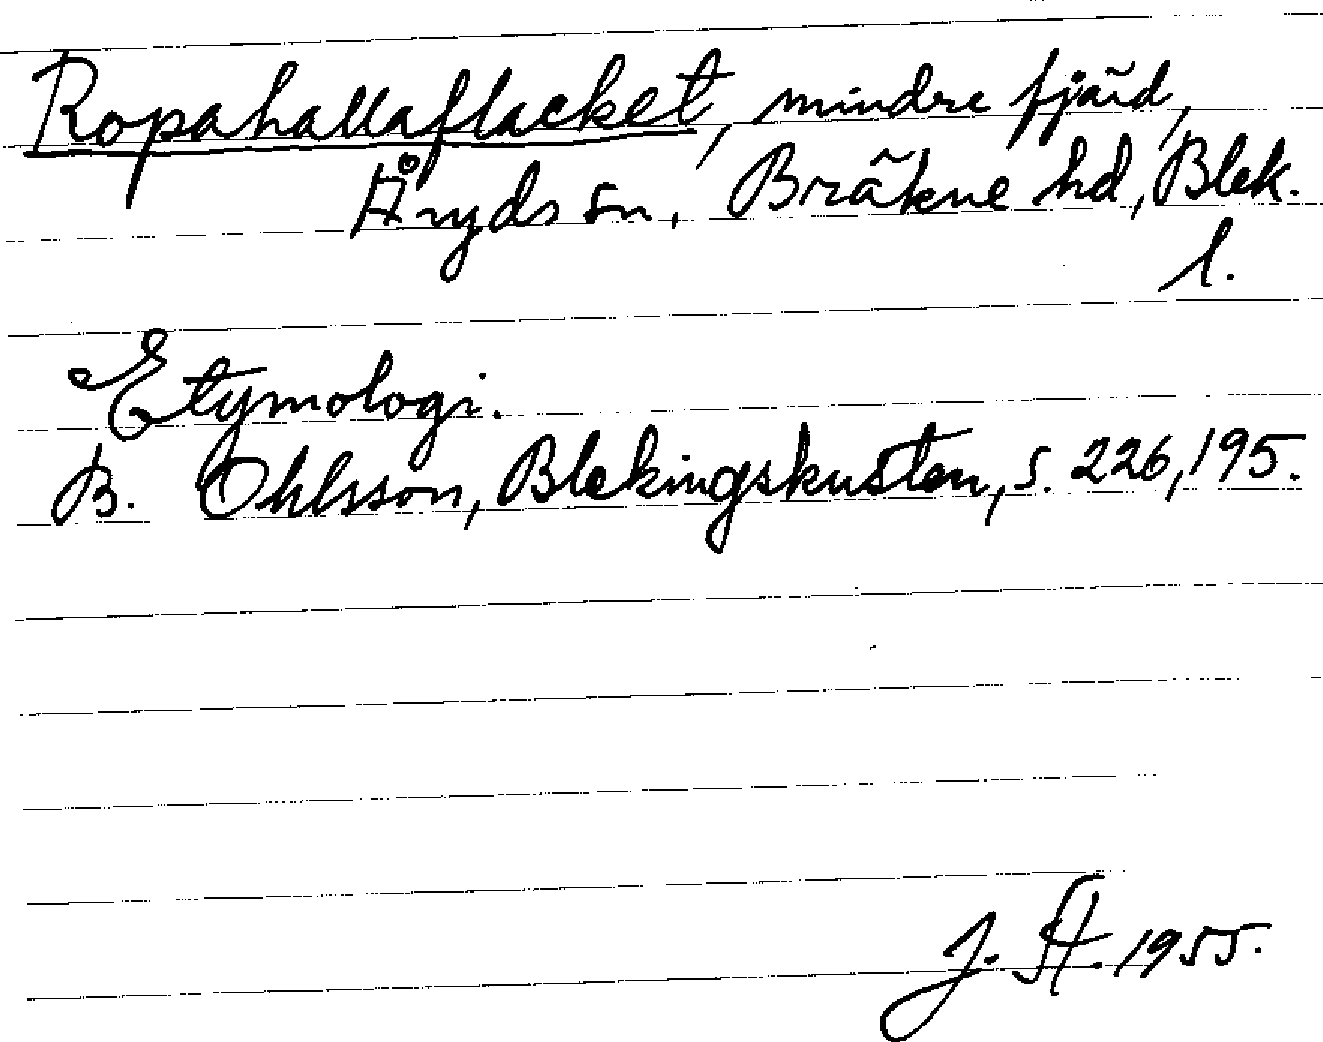 Ropahallaflacket, mindre fjärd,
Åryds sn, Bräkne hd, Blek.
l.
Etymologi.
B. Ohlsson, Blekingskusten, s. 226, 195.
J. St. 1955.